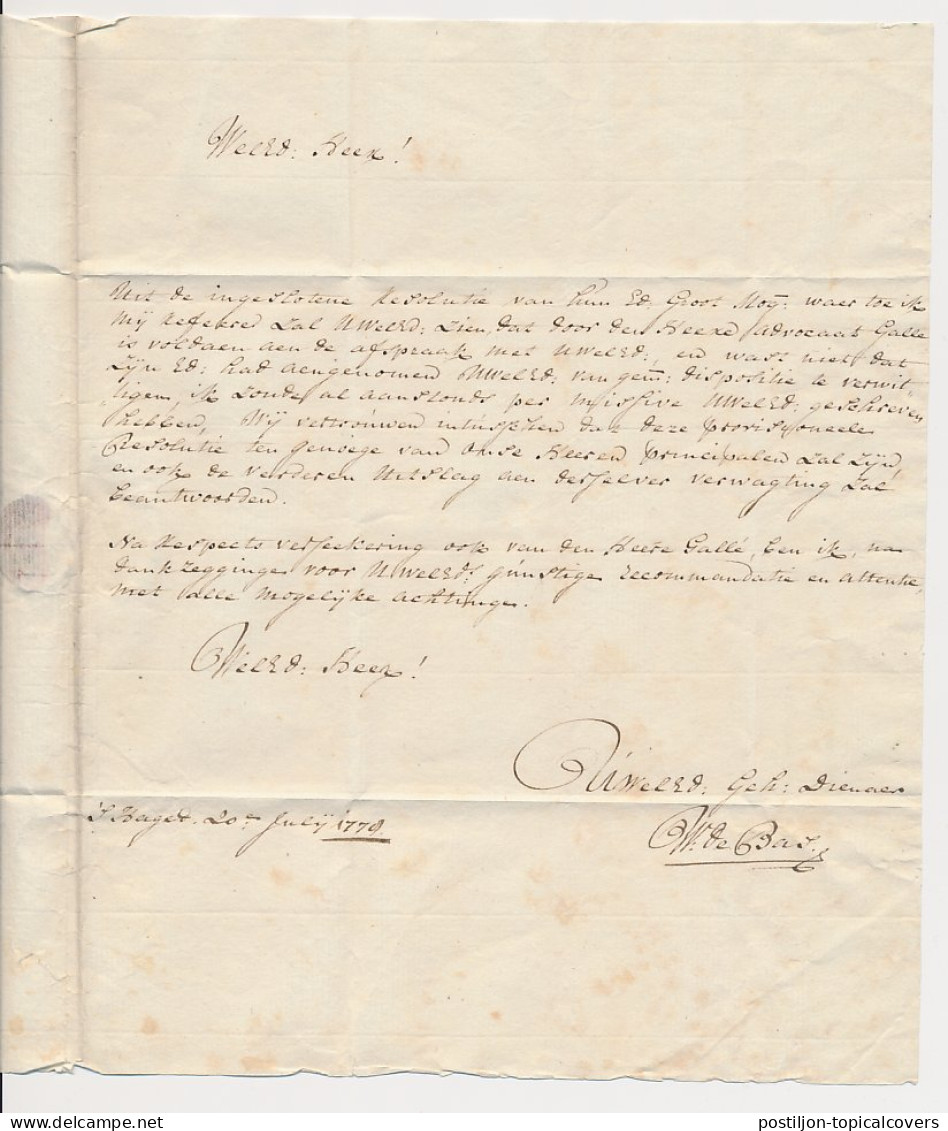 WelEd: Heer!
Uit de ingeslotene Resolutie van hun Ed: Groot Mog: waer toe ik
mij refereere zal UWelEd: zien, dat door den Heere Advocaat Galle
is voldaen aen de afspraak met UWelEd:, en wast niet dat
zijn Ed: had aengenomen UWelEd: van gem: dispositie te verwit
tigen, ik zoude al aanstonds per missive UWelEd: geschreven
hebben, Wij vertroúwen intússchen dat deze provisioneele
Resolutie ten genoege van onse Heeren principalen zal zijn,
en ook de verderen uitslag aen derselver verwagting zal
beantwoorden.
Na respects verseekering ook van den Heere Gallé, ben ik, na
dankzegginge voor UWelEds gúnstige recommandatie en attentie,
met alle mogelijke achtinge.
WelEd: Heer!
UWelEd: Geh: Dienaer
W: de Bas.
'S Haged. 20e Julij 1779.
postiljon-topicalcovers